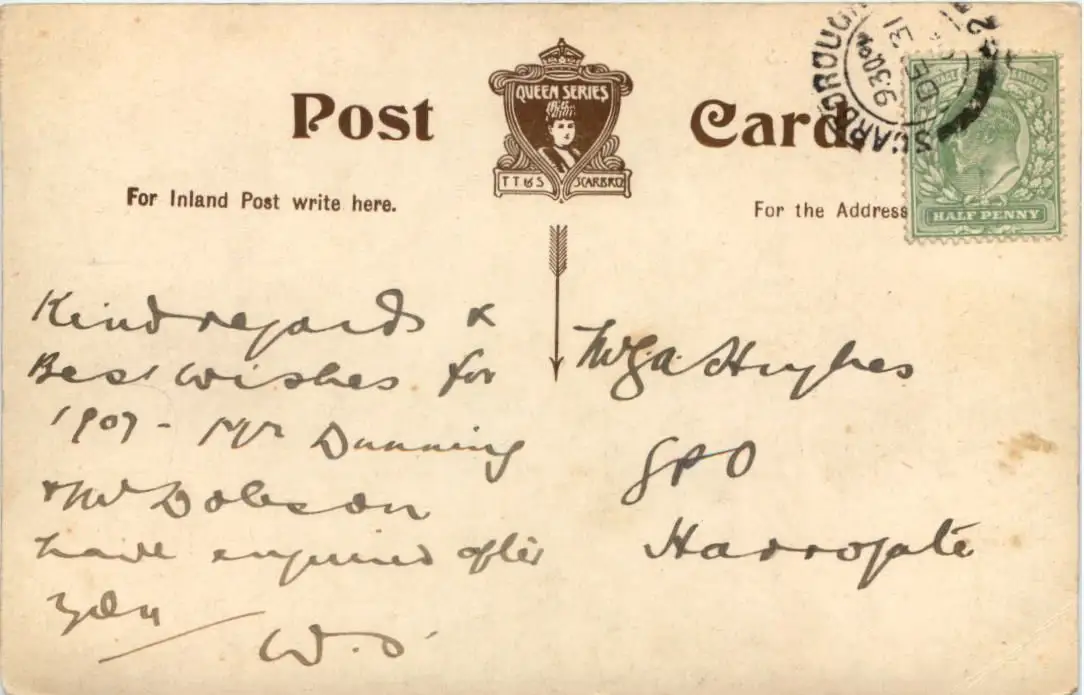 Post Card
QUEEN SERIES
T T & S SCARBRO
For Inland Post write here.
For the Address
SCARBOROUGH
9 30 PM
31
05
HALF PENNY
Kind regards &
Best wishes for
1907 - Mr Dunning
& Mr Dobson
have enquired after
you
W.
Hughes
GPO
Harrogate